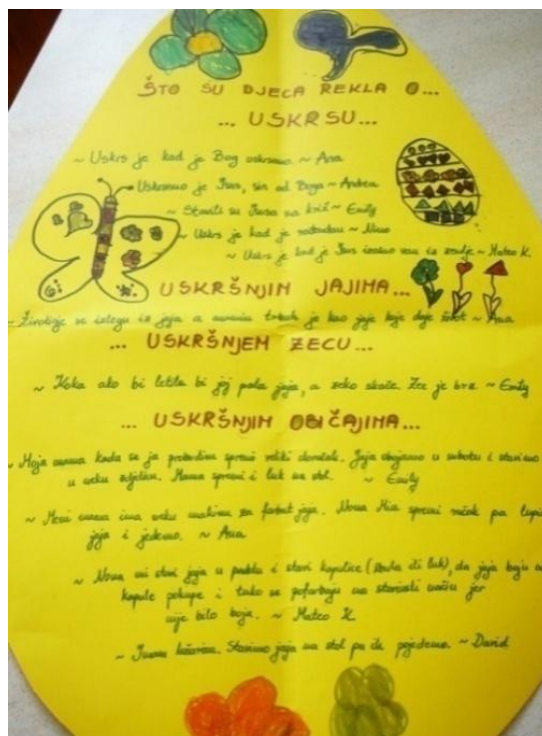 ŠTO SU DJECA REKLA O...
... USKRSU...
~ Uskrs je kad je Bog uskrsnuo ~ Ana
~ Uskrsnuo je Isus, sin od Boga ~ Andrea
~ Stavili su Isusa na križ ~ Emily
~ Uskrs je kad je ~
~ Uskrs je kad je Isus van iz zemlje ~ Mateo K.
USKRŠNJIM JAJIMA...
~ Životinje se izlegu iz jaja a je kao jaje koje daje život ~ Ana
... USKRŠNJEM ZECU...
~ Koka ako bi letila bi joj pala jaja, a zeko skače. Zec je brz ~ Emily
... USKRŠNJIM OBIČAJIMA...
~ Moja kada se ja probudim spremi veliki doručak. Jaja obojamo u subotu i stavimo
u neku zdjelicu. Mama spremi i luk na stol. ~ Emily
~ Meni ima neku za farbat jaja. Nona Mia spremi ručak pa
jaja i jedemo. ~ Ana
~ Nona mi stavi jaja u i stavi kapulice (ili luk), da jaja boju
kapule pokupe i tako se pofarbaju na jer
nije bilo boja. ~ Mateo K.
~ Stavimo jaja na stol pa ih pojedemo. ~ David